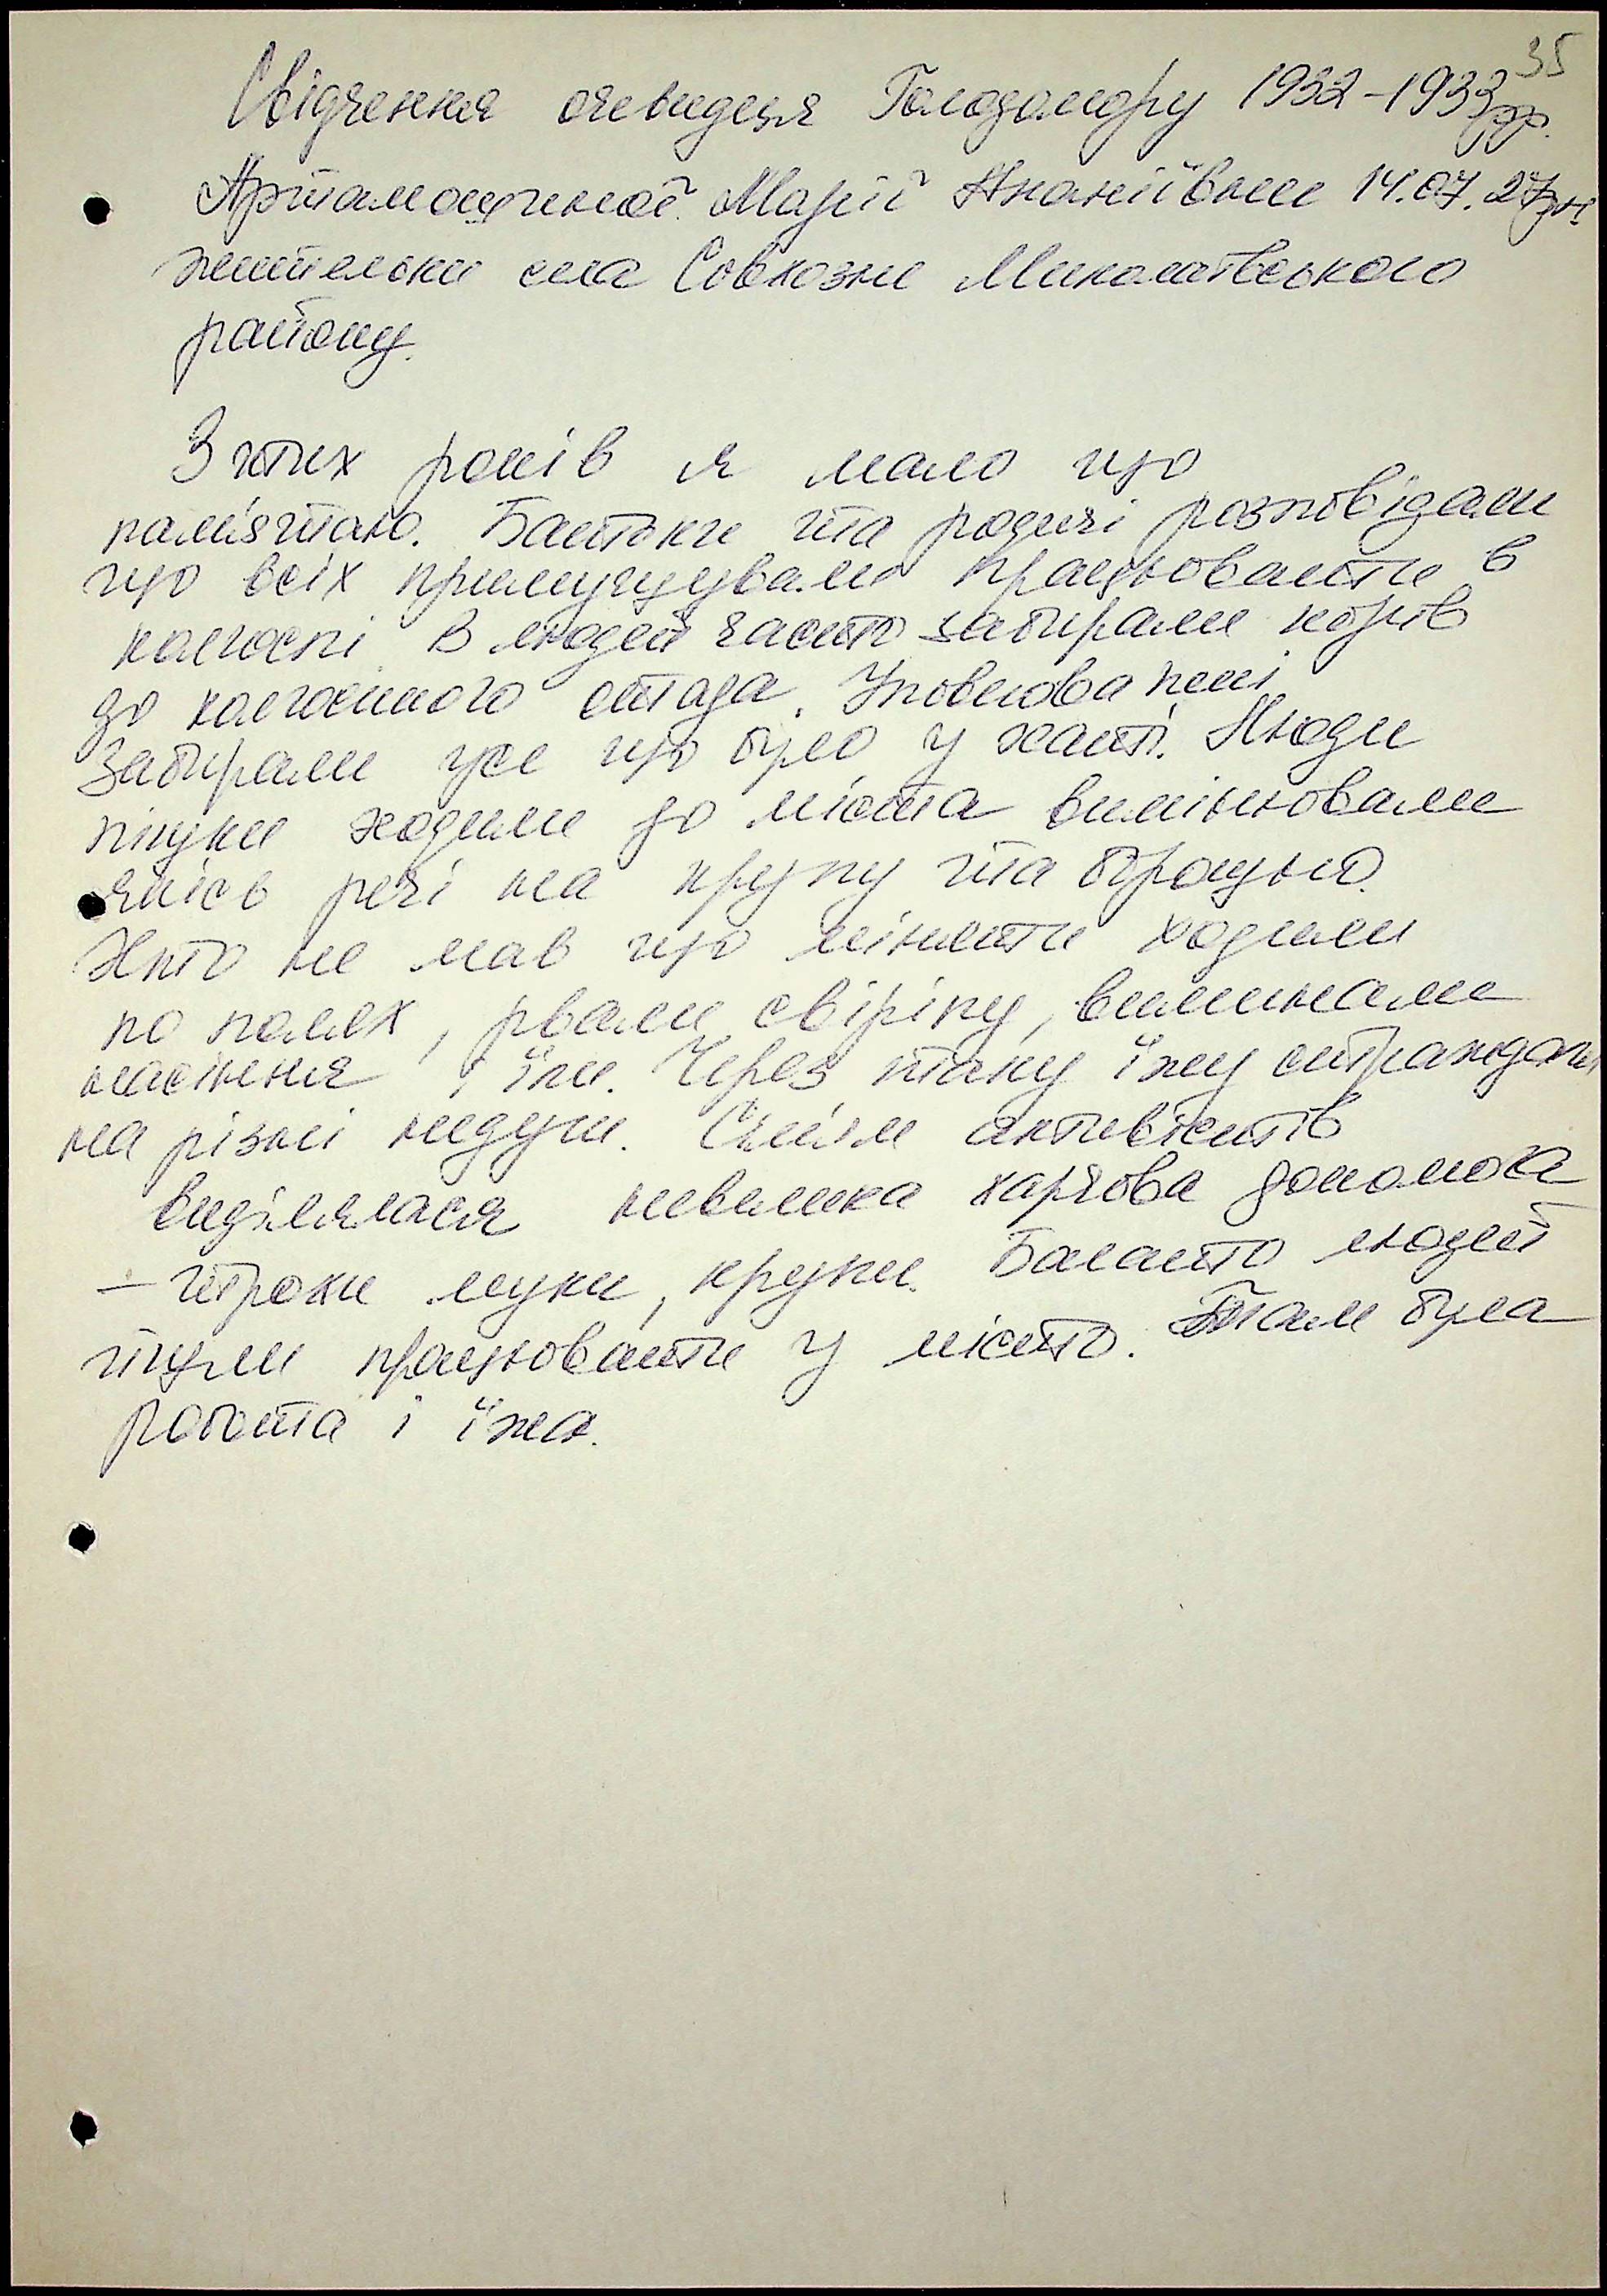 35
Свідчення очевидця Голодомору 1932-1933рр.
Марії Ананіївни 14.07.27рн
жительки села Совхозне Миколаївського
району.
З тих років я мало що
пам'ятаю. Батьки та родичі розповідали
що всіх примушували працювати в
колгоспі. В людей часто забирали корів
до колгоспного стада. Уповноважені
забирали усе що було у хаті. Люди
пішки ходили до міста вимінювали
якісь речі на крупу та
Хто не мав що міняти ходили
по полях, рвали свіріпу, вилинали
насіння, їли. Через таку їжу страждали
на різні недуги. Сім'ям активістів
виділялася невелика харчова допомога
– трохи муки, крупи. Багато людей
працювати у місто. Там була
робота і їжа.